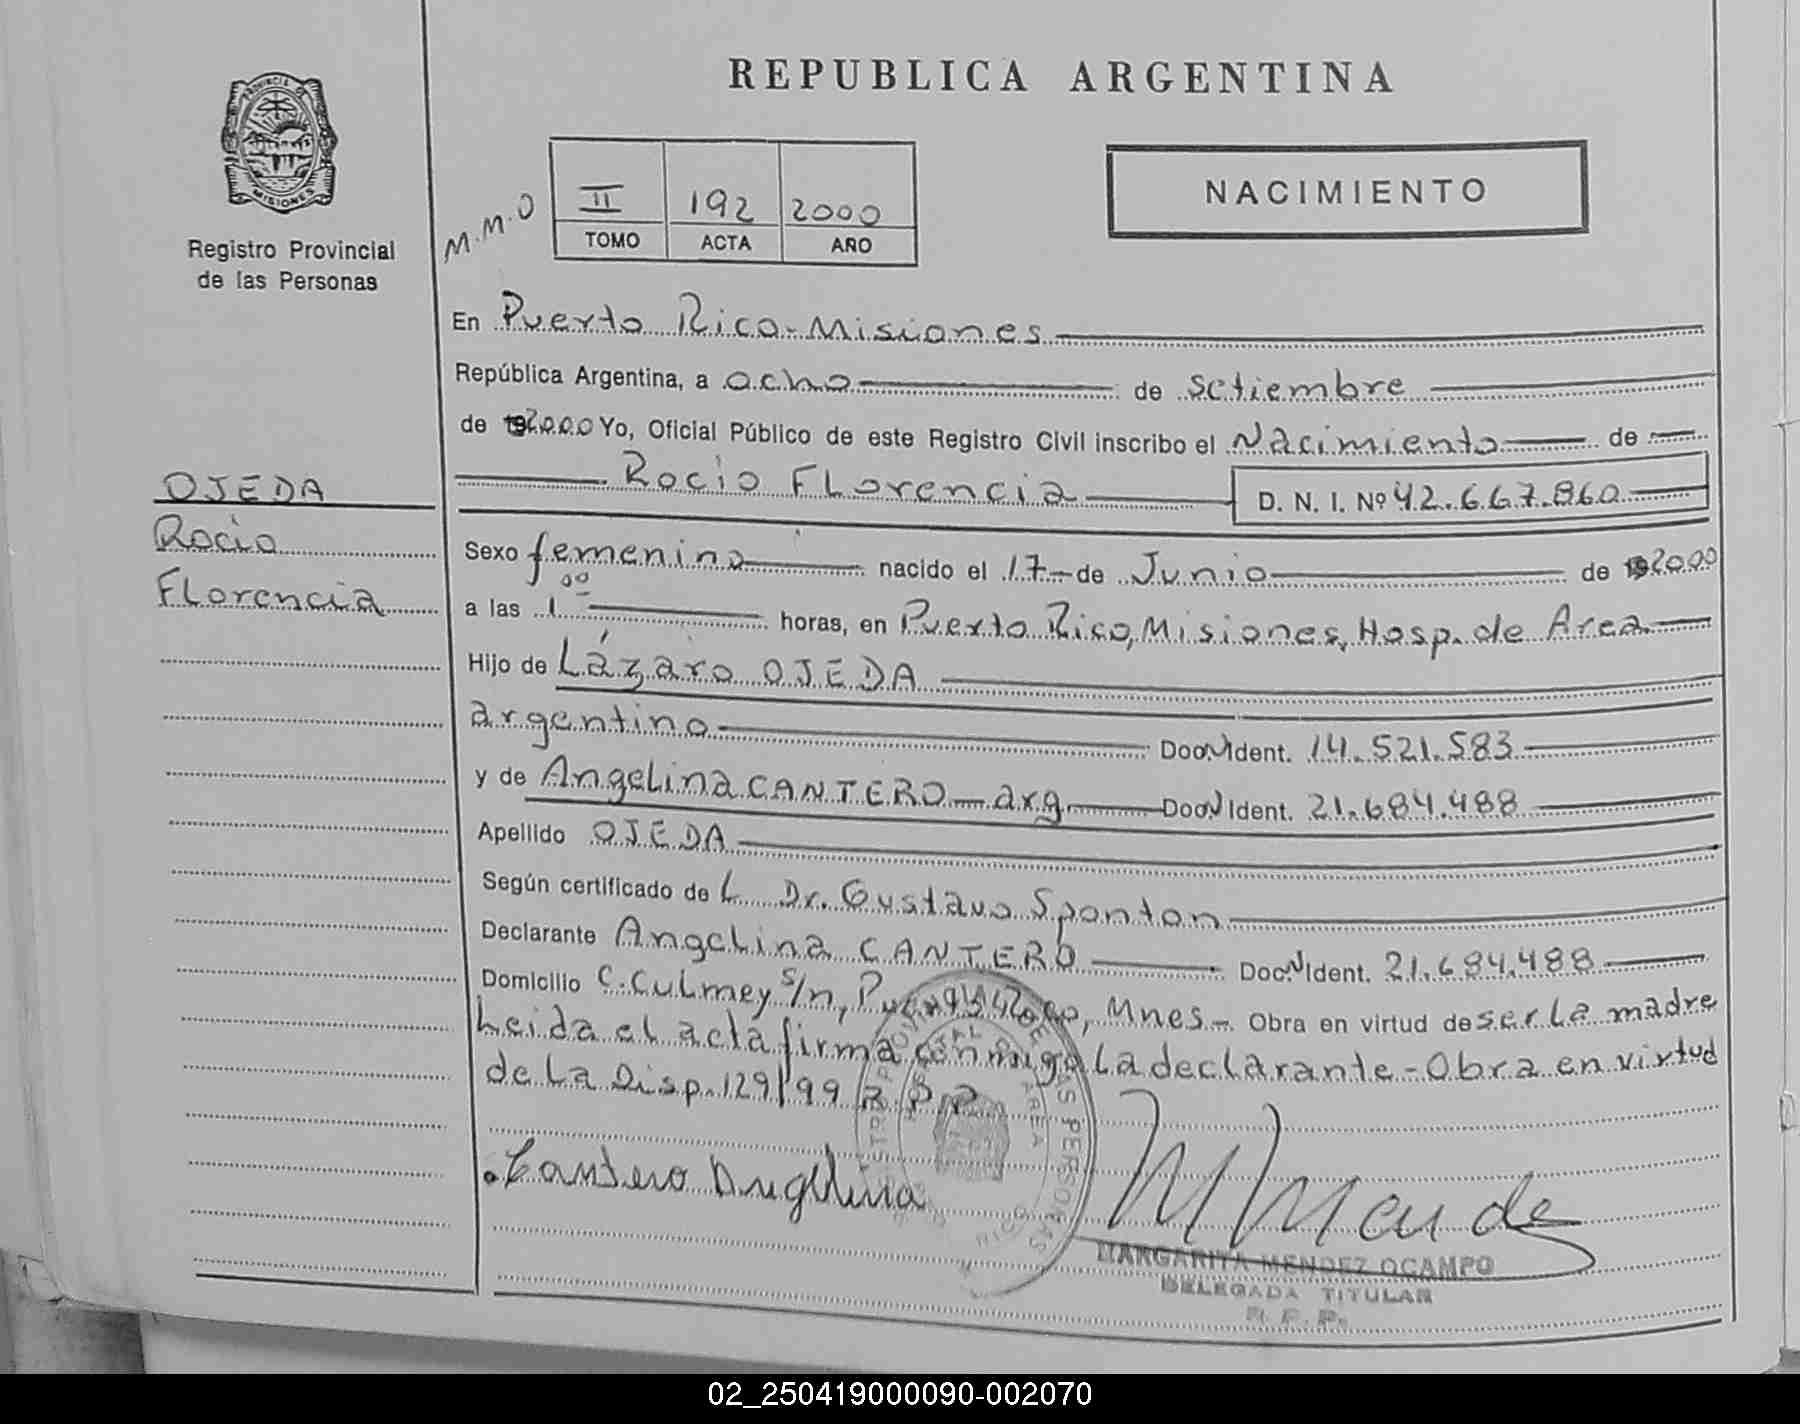 REPUBLICA ARGENTINA
PROVINCIA DE
MISIONES
Registro Provincial
de las Personas
M.M.O
II 192 2000
TOMO ACTA AÑO
NACIMIENTO
En Puerto Rico - Misiones
República Argentina, a ocho de setiembre
de 192000 Yo, Oficial Público de este Registro Civil inscribo el Nacimiento de
Rocio Florencia D. N. I. Nº 42.667.860
OJEDA
Rocio
Florencia
Sexo femenino nacido el 17 de Junio de 192000
a las 1 00 horas, en Puerto Rico, Misiones, Hosp. de Area
Hijo de Lázaro OJEDA
argentino Doc. N Ident. 14.521.583
y de Angelina CANTERO - arg Doc. N Ident. 21.684.488
Apellido OJEDA
Según certificado de L Dr. Gustavo Sponton
Declarante Angelina CANTERO Doc. N Ident. 21.684.488
Domicilio C. Culmey s/n, Puerto Rico, Mnes - Obra en virtud de ser la madre
Leida el acta firma conmigo la declarante - Obra en virtud
de la Disp. 129/99 R.P.P
Cantero Angelina
M Mendez
MARGARITA MENDEZ OCAMPO
DELEGADA TITULAR
R. P. P.
02_250419000090-002070